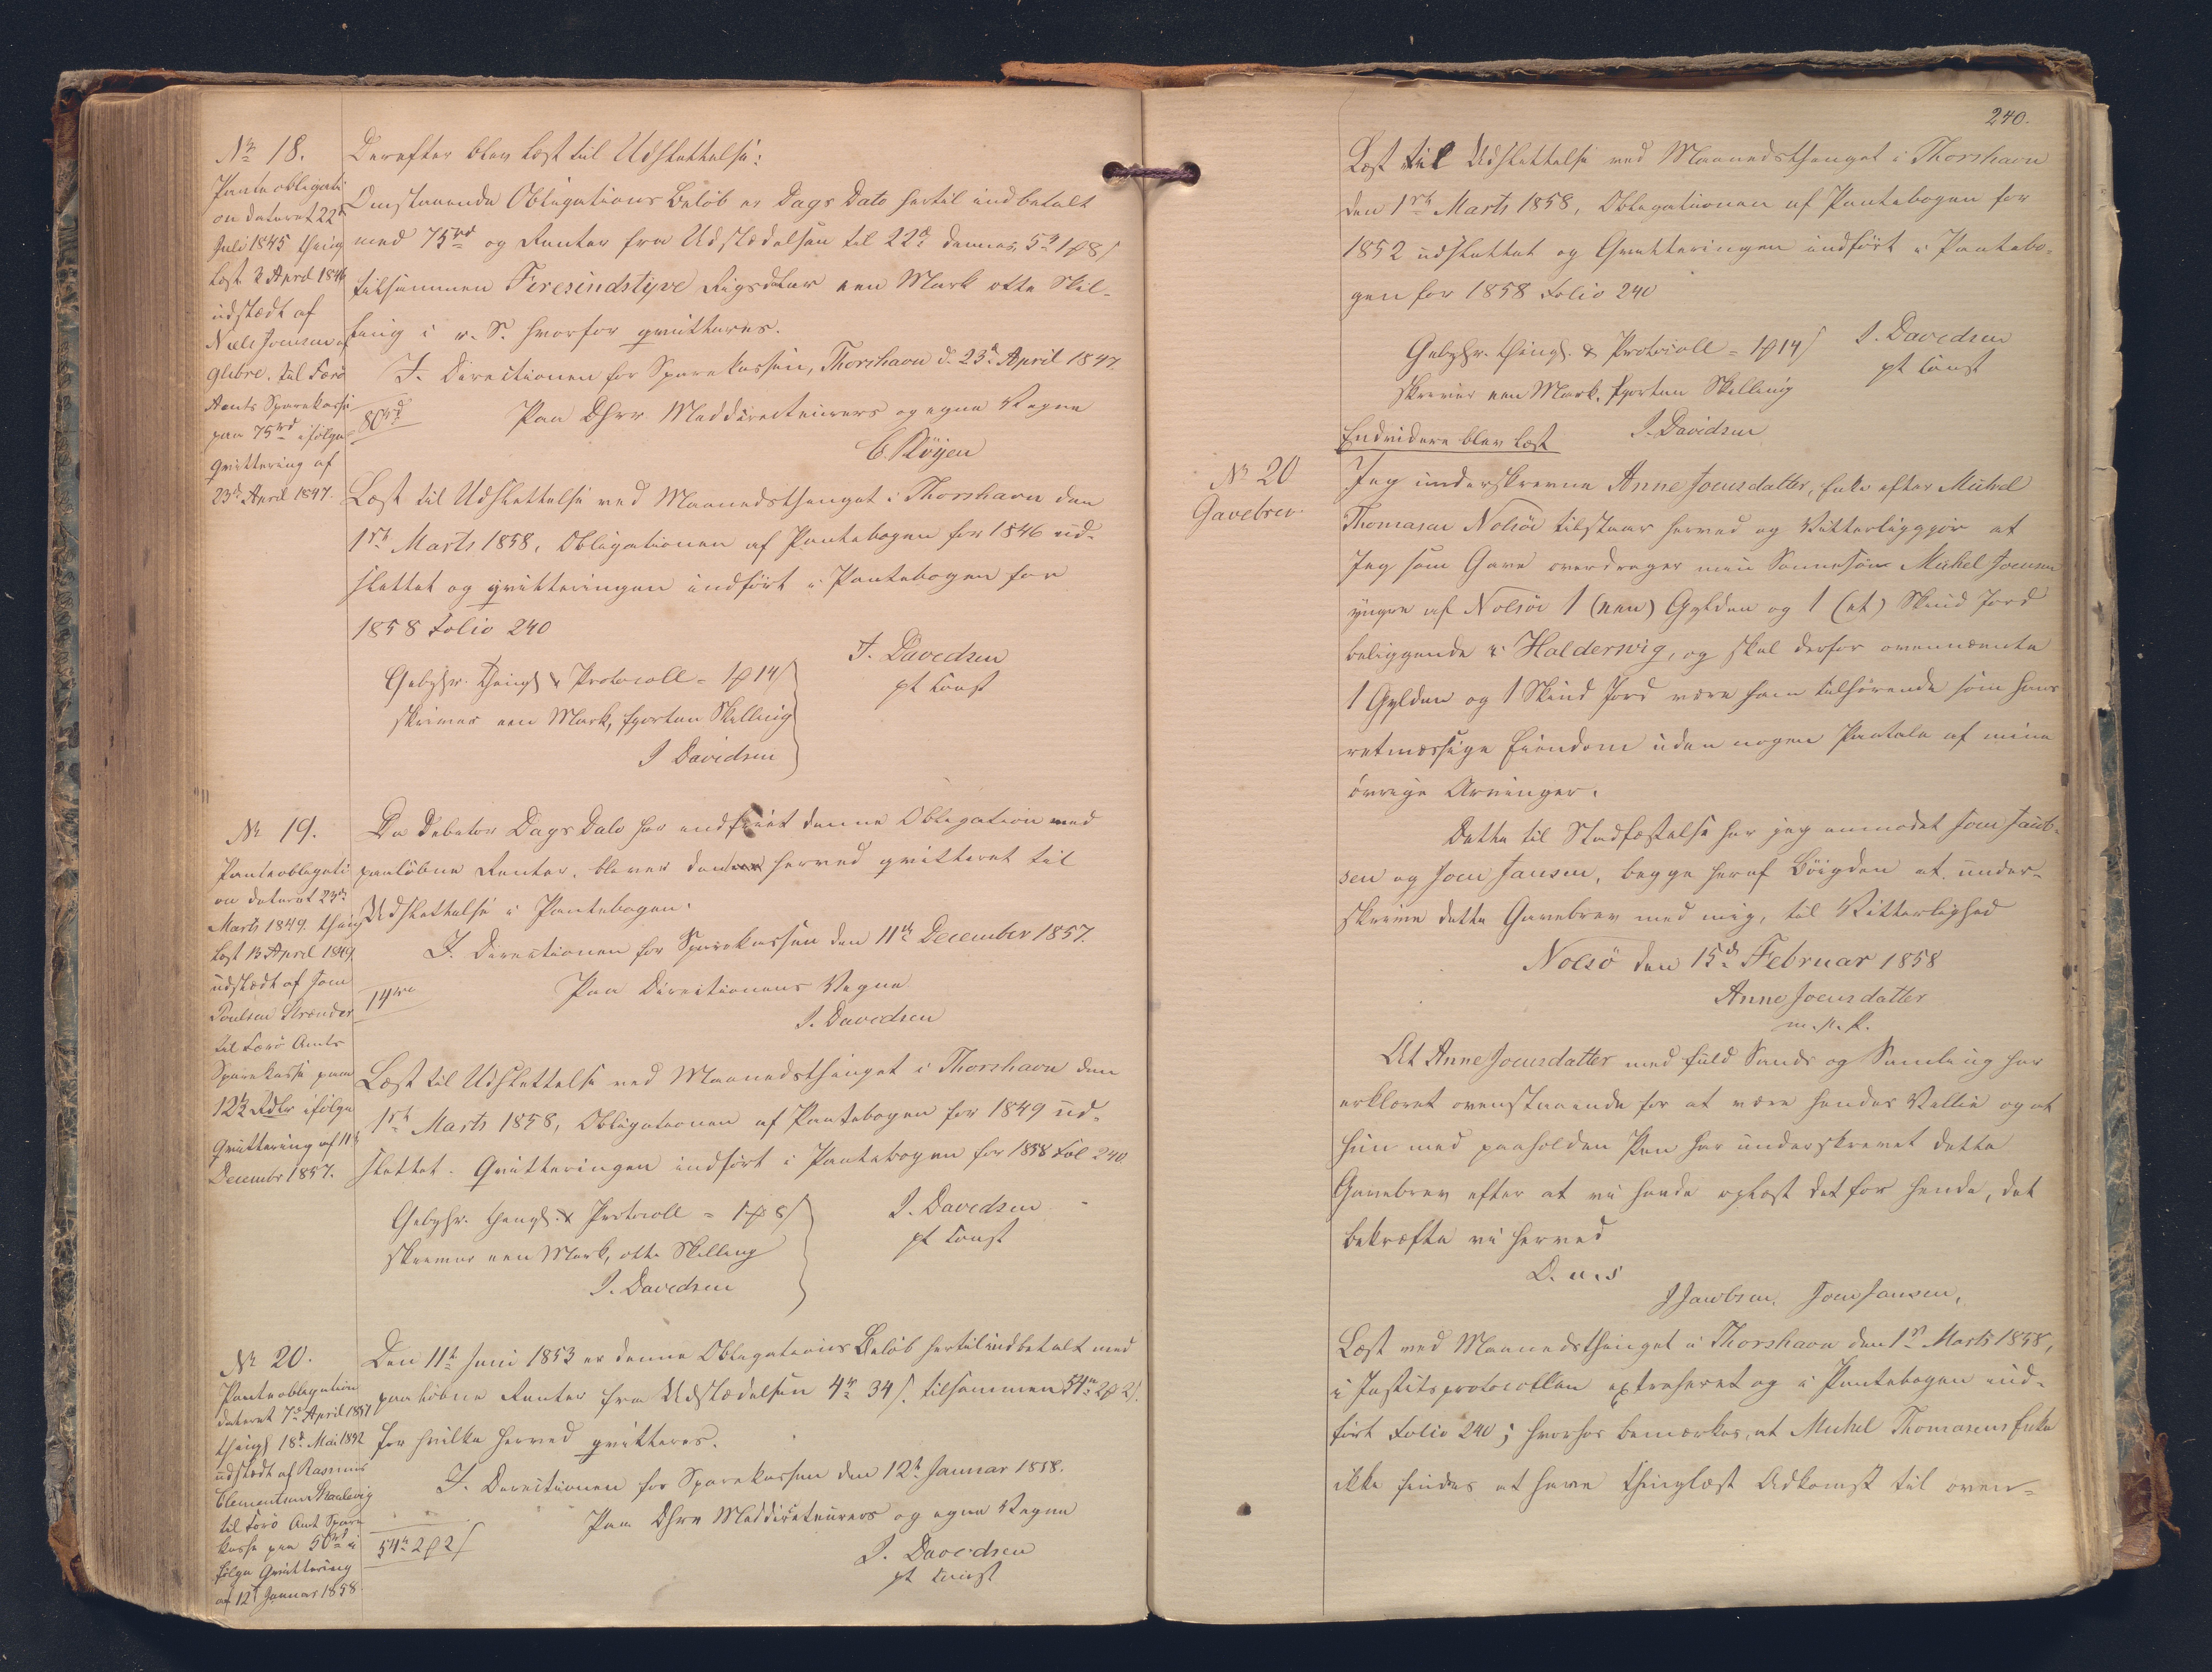 No 18.
Panteobligati
on dateret 22de
Juli 1845 thing
læst 2 April 1846
udstædt af
Niels Joensen
Glibre. til Færø
Amts Sparekasse
paa 75rd ifølge
Qvittering af
23de April 1847.
Derefter blev læst til Udslettelse:
Omstaaende Obligations Beløb er Dags Dato hertil indbetalt
med 75rd og Renter fra Udstædelsen til 22de dennes, 5rd 1ꝸ 8s
tilsammen Firesindstyve Rigsdaler een Mark otte Skil-
ling i r. S. hvorfor qvitteres.
I Directionen for Sparekassen, Thorshavn d. 23de April 1847.
80rd
Paa Dhrr Meddirecteurers og egne Vegne
C. Pløyen
Læst til Udslettelse ved Maanedsthinget i Thorshavn den
1ste Marts 1858, Obligationen af Pantebogen for 1846 ud-
slettet og qvitteringen indført i Pantebogen for
1858 Folio 240
Gebyhr. thingl. & Protocoll = 1ꝸ 14s
skriver een Mark, fjorten Skilling
J Davidsen
J. Davidsen
pt const
No 19.
Panteobligati
on dateret 23de
Marts 1849. thing
læst 13 April 1849.
udstædt af Joen
Poulsen Strender
til Færø Amts
Sparekasse paa
12½ Rdlr ifølge
Qvittering af 11te
Decembr 1857.
Da Debitor Dags Dato har indfriet denne Obligation med
paaløbne Renter, bliver den herved qvitteret til
Udslettelse i Pantebogen.
I. Directionen for Sparekassen den 11te December 1857.
14rd
Paa Directionens Vegne
J. Davidsen
Læst til Udslettelse ved Maanedsthinget i Thorshavn den
1ste Marts 1858, Obligationen af Pantebogen for 1849 ud-
slettet. Qvitteringen indført i Pantebogen for 1858 Fol 240.
Gebyhr. thingl. & Protocoll = 1ꝸ 8s
skriver een Mark, otte Skilling
J. Davidsen
J. Davidsen
pt const
No 20.
Panteobligation
dateret 7de April 1851
thingl 18de Mai 1852
udstædt af Rasmus
Clementsen Skaalevig
til Færø Amt Spare
kasse paa 50rd i
følge Qvittering
af 12te Januar 1858.
Den 11te Juni 1853 er denne Obligations Beløb hertil indbetalt med
paaløbne Renter fra Udstædelsen 4rd 34s. tilsammen 54rd 2ꝸ 2s.
for hvilke herved qvitteres.
I. Directionen for Sparekassen den 12te Januar 1858.
Paa Dhrr Meddirecteurers og egne Vegne
54rd 2ꝸ 2s
J. Davidsen
pt const
240.
Læst til Udslettelse ved Maanedsthinget i Thorshavn
den 1ste Marts 1858, Obligationen af Pantebogen for
1852 udslettet og Qvitteringen indført i Pantebo-
gen for 1858 Folio 240
Gebyhr. thingl. & Protocoll = 1ꝸ 14s
skriver een Mark, fjorten Skilling
J. Davidsen
J. Davidsen
pt const
Endvidere blev læst
No 20
Gavebrev.
Jeg underskrevne Anne Joensdatter, Enke efter Michel
Thomasen Nolsöe tilstaaer herved og Vitterliggjør at
Jeg som Gave overdrager min Sønnesøn Michel Joensen
yngre af Nolsöe 1 (een) Gylden og 1 (et) Skind Jord
beliggende i Haldersvig, og skal derfor ovennævnte
1 Gylden og 1 Skind Jord være ham tilhørende som hans
retmæssige Eiendom uden nogen Paatale af mine
øvrige Arvinger.
Dette til Stadfæstelse har jeg anmodet Joen Jacob-
sen og Joen Jansen, begge heraf Bøigden at under-
skrive dette Gavebrev med mig, til Vitterlighed
Nolsö den 15de Februar 1858
Anne Joensdatter
m. p. P.
At Anne Joensdatter med fuld Sands og Samling har
erklæret ovenstaaende for at være hendes Villie og at
hun med paaholden Pen har underskrevet dette
Gavebrev efter at vi havde oplæst det for hende, det
bekræfte vi herved
D. u. s
J Jacobsen. Joen Jansen.
Læst ved Maanedsthinget i Thorshavn den 1ste Marts 1858,
i Justitsprotocollen extraheret og i Pantebogen ind-
ført Folio 240; hvorhos bemærkes, at Michel Thomasens Enke
ikke findes at have thinglæst Adkomst til oven-